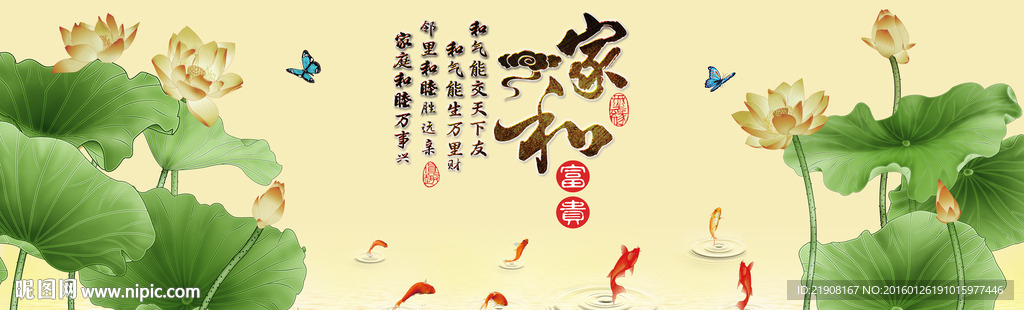 家和
富貴
和气能交天下友
和气能生万里财
邻里和睦胜远亲
家庭和睦万事兴
昵图网 www.nipic.com
ID:21908167 NO:20160126191015977446